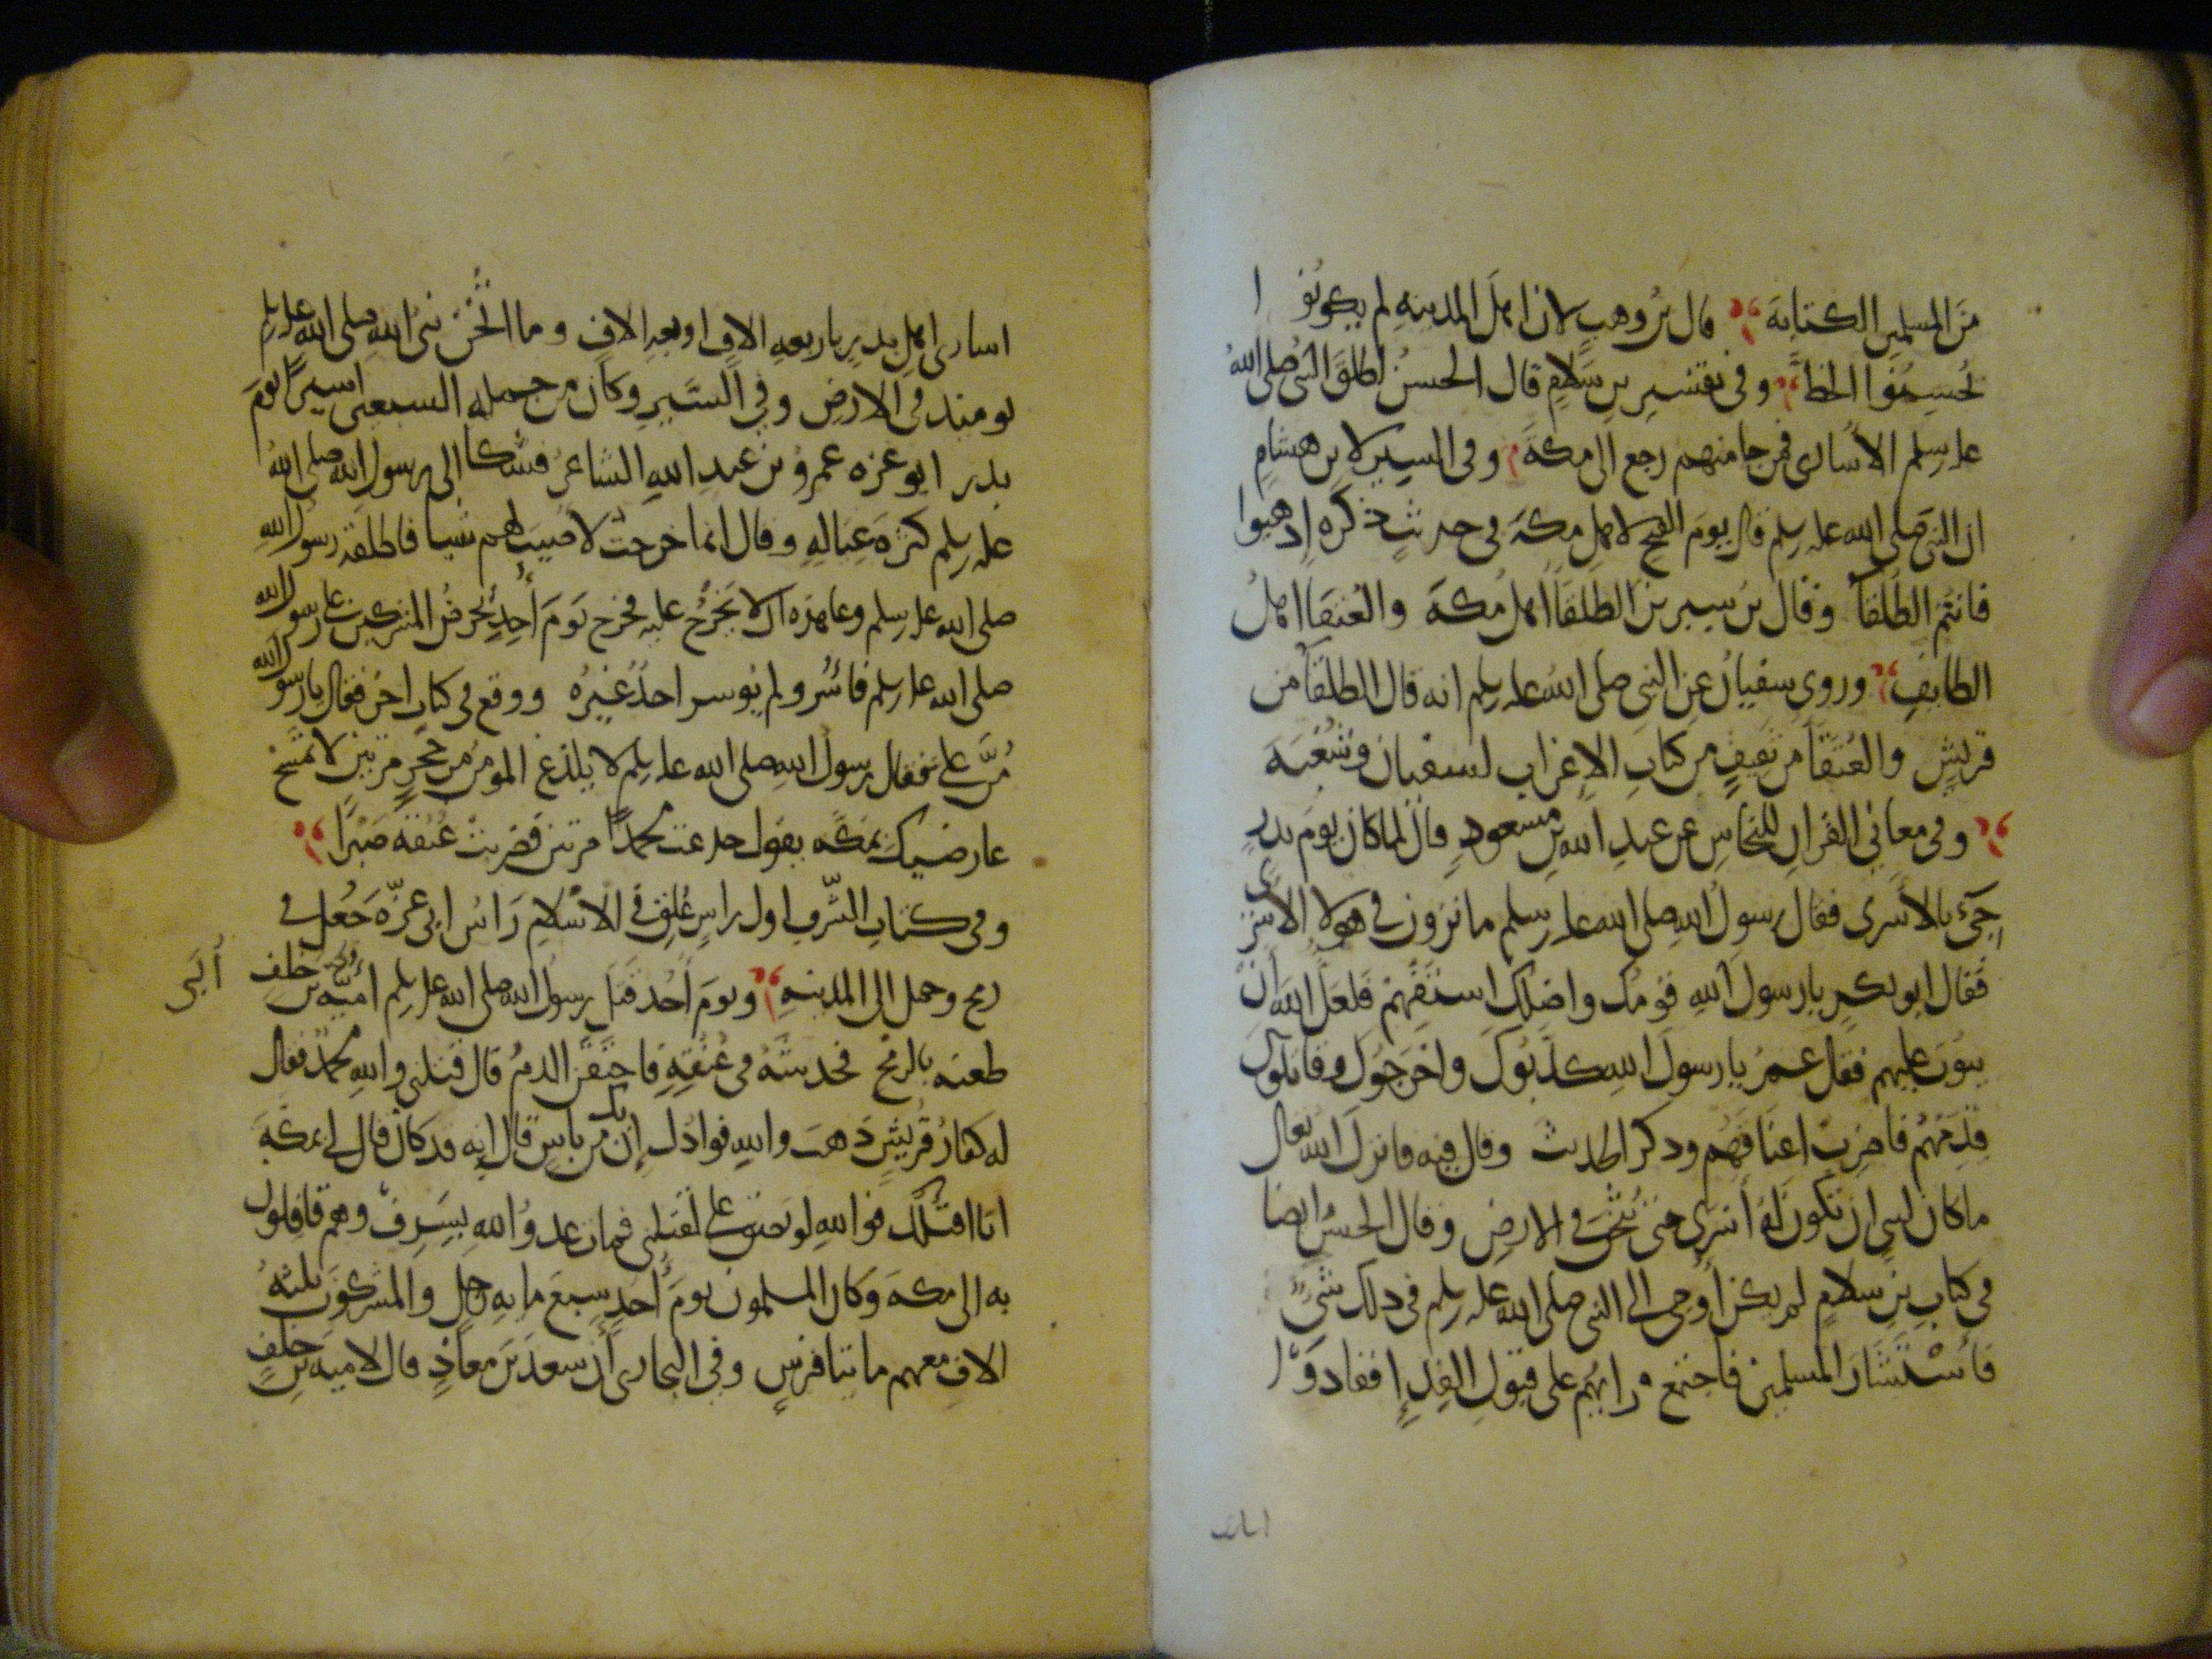 من المسلمين الكتابة قال بن وهب لان اهل المدينه لم يكونوا
يحسنوا الخط وفى تفسير بن سلام قال الحسن اطلق النبى صلى الله
عليه وسلم الاسارى فمن جا منهم رجع الى مكة وفى السير لابن هشام
ان النبى صلى الله عليه وسلم قال يوم الفتح لاهل مكة فى حديث ذكره اذهبوا
فانتم الطلقا وقال بن سيرين الطلقا اهل مكة والعتقا اهل
الطايف وروى سفيان عن النبى صلى الله عليه وسلم انه قال الطلقا من
قريش والعتقا من ثقيف من كتاب الاعراب لسفيان وشعبه
وفى معاني القران للنحاس عن عبد الله بن مسعود قال لما كان يوم بدر
جىء بالاسرى فقال رسول الله صلى الله عليه وسلم ما ترون في هولا الاسرى
فقال ابو بكر يا رسول الله قومك واصلك استبقهم فلعل الله ان
يتوب عليهم فقال عمر يا رسول الله كذبوك واخرجوك وقاتلوك
قدمهم فاضرب اعناقهم وذكر الحديث وقال فيه فانزل الله تعالى
ما كان لنبى ان تكون له اسرى حتى يثخن فى الارض وقال الحسن ايضا
فى كتاب بن سلام لم يكن اوحى الى النبى صلى الله عليه وسلم فى ذلك شىء
فاستشار المسلمين فاجتمع رايهم على قبول الفدا ففادوا
اسارى
اسارى اهل بدر باربعه الاف اربعه الاف وما اثخن نبى الله صلى الله عليه وسلم
يوميذ فى الارض وفي السير وكان من جمله السبعين اسيرا يوم
بدر ابو عزه عمرو بن عبد الله الشاعر فشكا الى رسول الله صلى الله
عليه وسلم كثره عياله وقال انما خرجت لاصيب لهم شيا فاطلقه رسول الله
صلى الله عليه وسلم وعاهده ان لا يخرج عليه فخرج يوم احد يحرض المشركين على رسول الله
صلى الله عليه وسلم فاسر ولم يوسر احد غيره ووقع فى كتاب اخر فقال يا رسول الله
من على فقال رسول الله صلى الله عليه وسلم لا يلدغ المومن من جحر مرتين لا تمسح
عارضيك بمكه يقول خدعت محمدا مرتين فضربت عنقه صبرا
وفى كتاب الشرف اول راس علق في الاسلام راس ابى عزه جعل في
رمح وحمل الى المدينه ويوم احد قتل رسول الله صلى الله عليه وسلم اميه بن خلف
أبى
طعنه بالرمح فخدشه فى عنقه فاحتقن الدم قال قتلنى والله محمد فقال
له كفار قريش ذهب والله فوادك ان بك من باس قال انه قد كان قال لى بمكه
انا اقتلك فوالله لو بصق على لقتلنى فمات عدو الله بسرف وهم قافلون
به الى مكه وكان المسلمون يوم احد سبع مايه رجل والمشركون ثلثه
الاف معهم مايتا فرس وفي البخارى ان سعد بن معاذ قال لاميه بن خلف